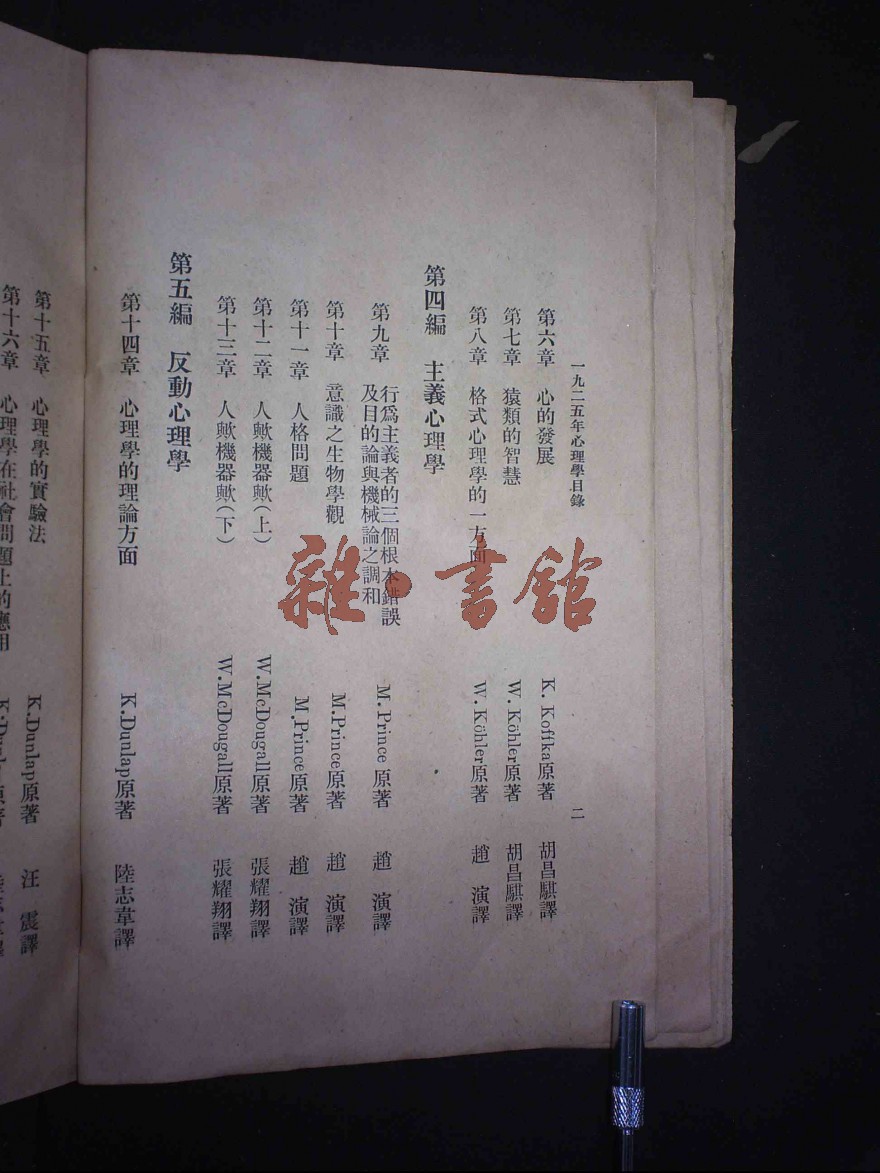 一九二五年心理學目錄
二
第六章 心的發展 K. Koffka原著 胡昌騏譯
第七章 猿類的智慧 W. Köhler原著 胡昌騏譯
第八章 格式心理學的一方面 W. Köhler原著 趙 演譯
第四編 主義心理學
第九章 行爲主義者的三個根本錯誤
及目的論與機械論之調和 M. Prince 原著 趙 演譯
第十章 意識之生物學觀 M.Prince原著 趙 演譯
第十一章 人格問題 M.Prince原著 趙 演譯
第十二章 人歟機器歟(上) W.McDougall原著 張耀翔譯
第十三章 人歟機器歟(下) W.McDougall原著 張耀翔譯
第五編 反動心理學
第十四章 心理學的理論方面 K.Dunlap原著 陸志韋譯
第十五章 心理學的實驗法 K.Dunlap原著 汪 震譯
第十六章 心理學在社會問題上的應用 K.Dunlap原著
雜·書館